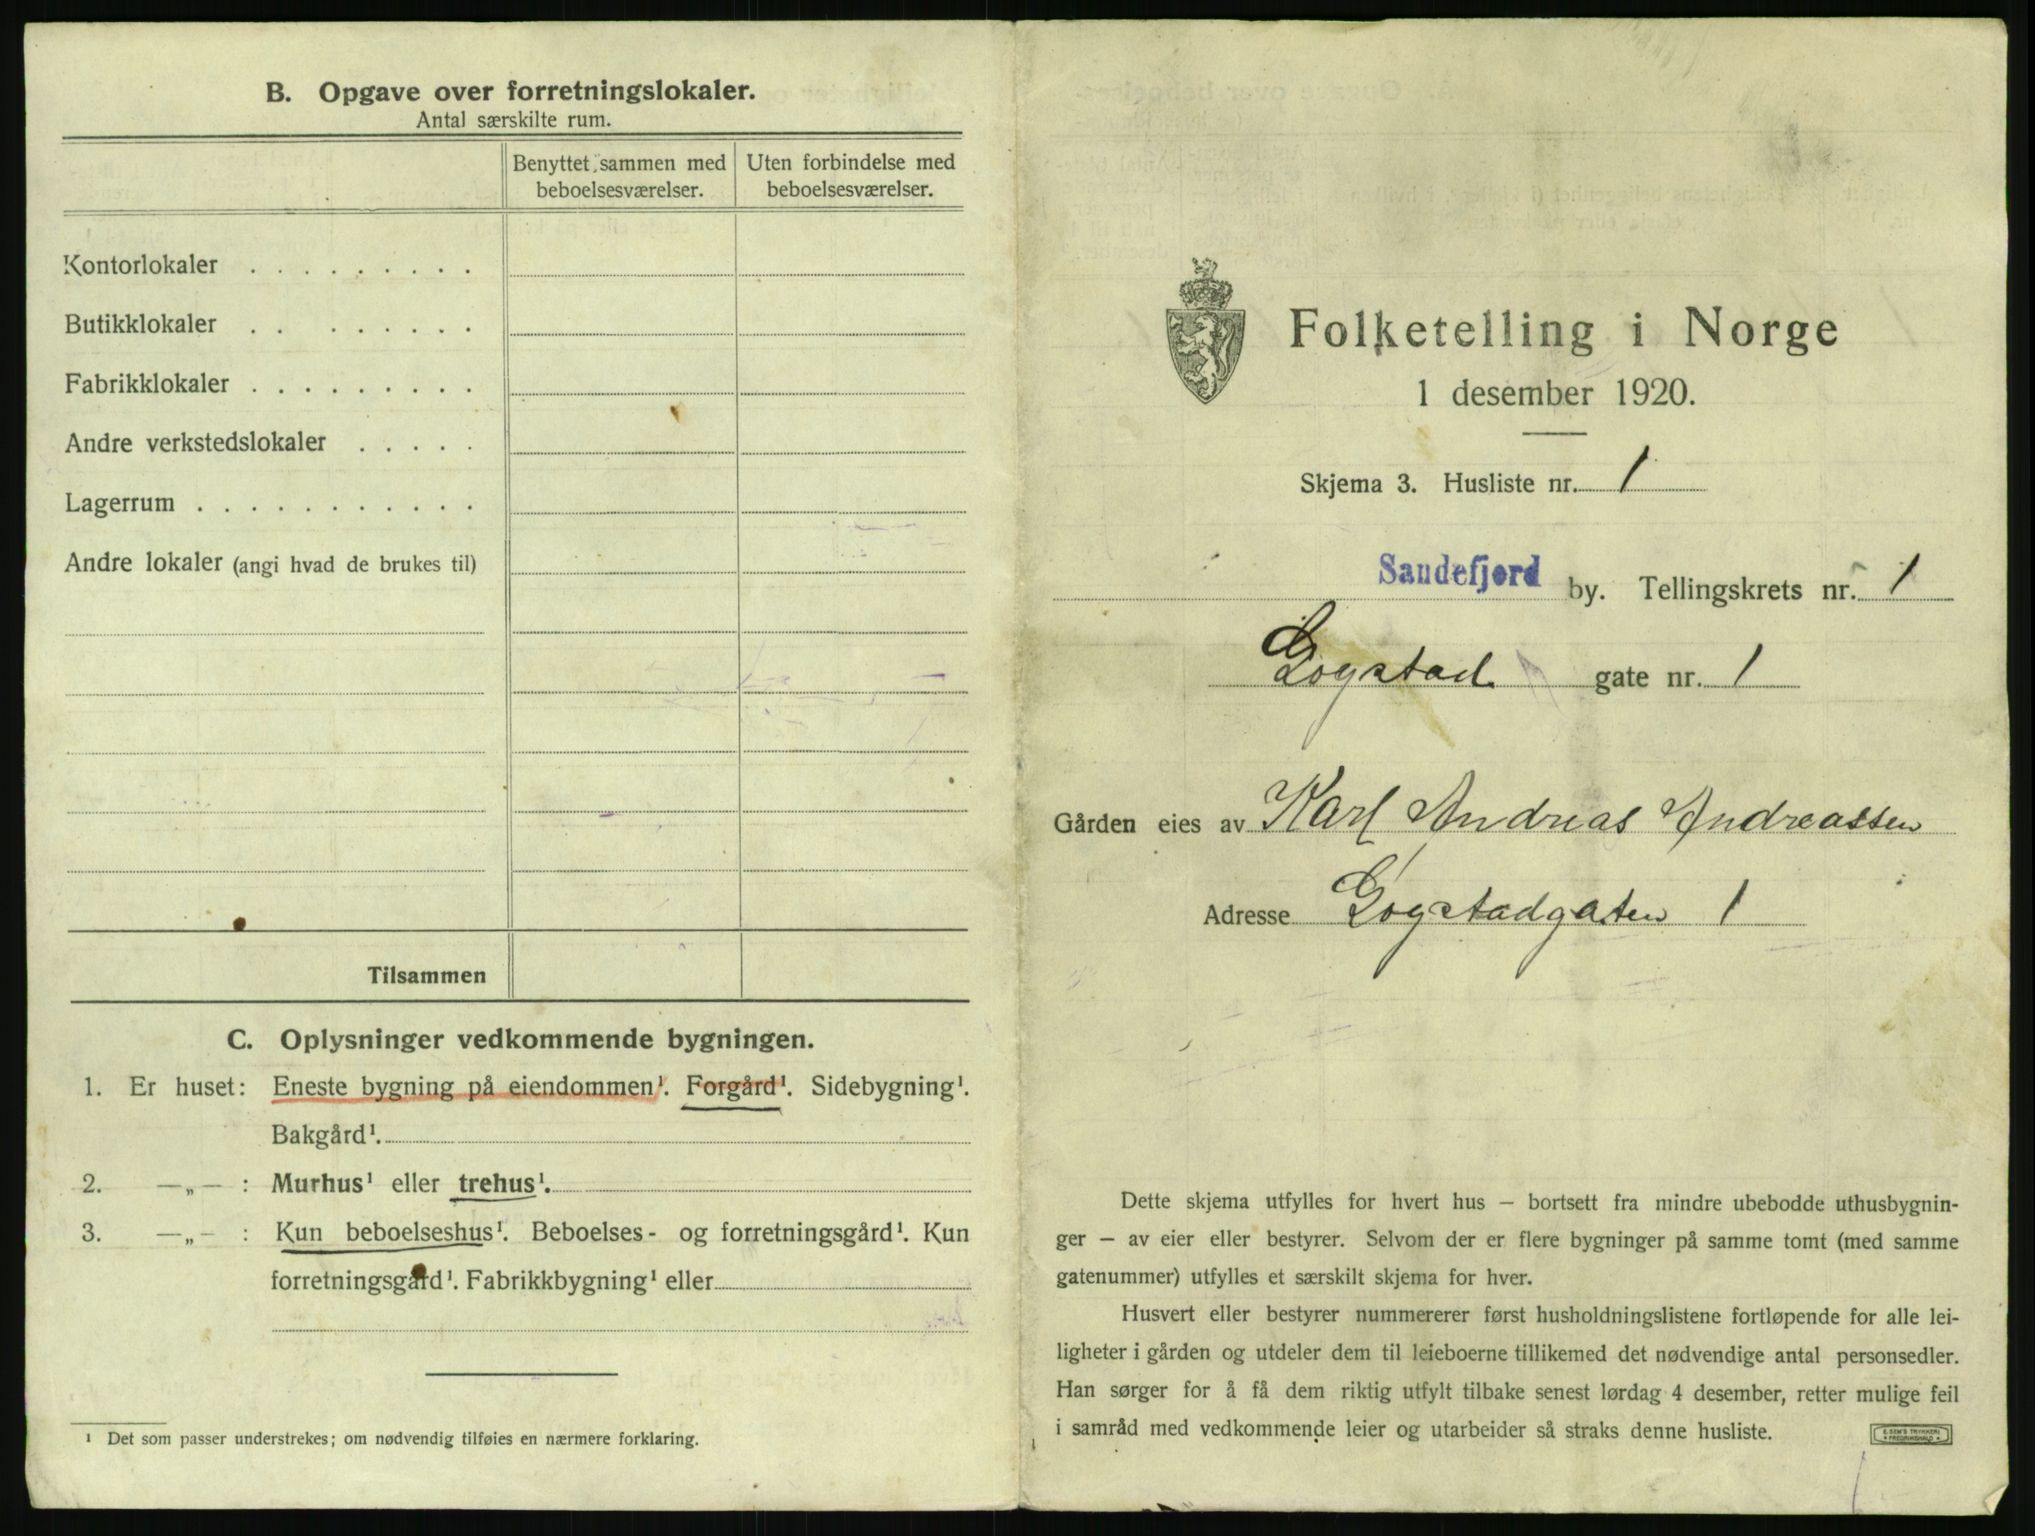 B. Opgave over forretningslokaler.
Antal særskilte rum.
Benyttet sammen med beboelsesværelser.
Uten forbindelse med beboelsesværelser.
Kontorlokaler . . . . . . . . .
Butikklokaler . . . . . . . .
Fabrikklokaler . . . . . . . . .
Andre verkstedslokaler . . . . .
Lagerrum . . . . . . . . . . .
Andre lokaler (angi hvad de brukes til)
Tilsammen
C. Oplysninger vedkommende bygningen.
1. Er huset: Eneste bygning på eiendommen¹. Forgård¹. Sidebygning¹.
Bakgård¹.
2. —„— : Murhus¹ eller trehus¹.
3. —„— : Kun beboelseshus¹. Beboelses- og forretningsgård¹. Kun
forretningsgård¹. Fabrikkbygning¹ eller
¹ Det som passer understrekes; om nødvendig tilføies en nærmere forklaring.
Folketelling i Norge
1 desember 1920.
Skjema 3. Husliste nr. 1
Sandefjord by. Tellingskrets nr. 1
Gogstad gate nr. 1
Gården eies av Karl Andreas Andreassen
Adresse Gogstadgaten 1
Dette skjema utfylles for hvert hus — bortsett fra mindre ubebodde uthusbygnin-
ger — av eier eller bestyrer. Selvom der er flere bygninger på samme tomt (med samme
gatenummer) utfylles et særskilt skjema for hver.
Husvert eller bestyrer nummererer først husholdningslistene fortløpende for alle lei-
ligheter i gården og utdeler dem til leieboerne tillikemed det nødvendige antal personsedler.
Han sørger for å få dem riktig utfylt tilbake senest lørdag 4 desember, retter mulige feil
i samråd med vedkommende leier og utarbeider så straks denne husliste.
E. SEM'S TRYKKERI
FREDRIKSHALD